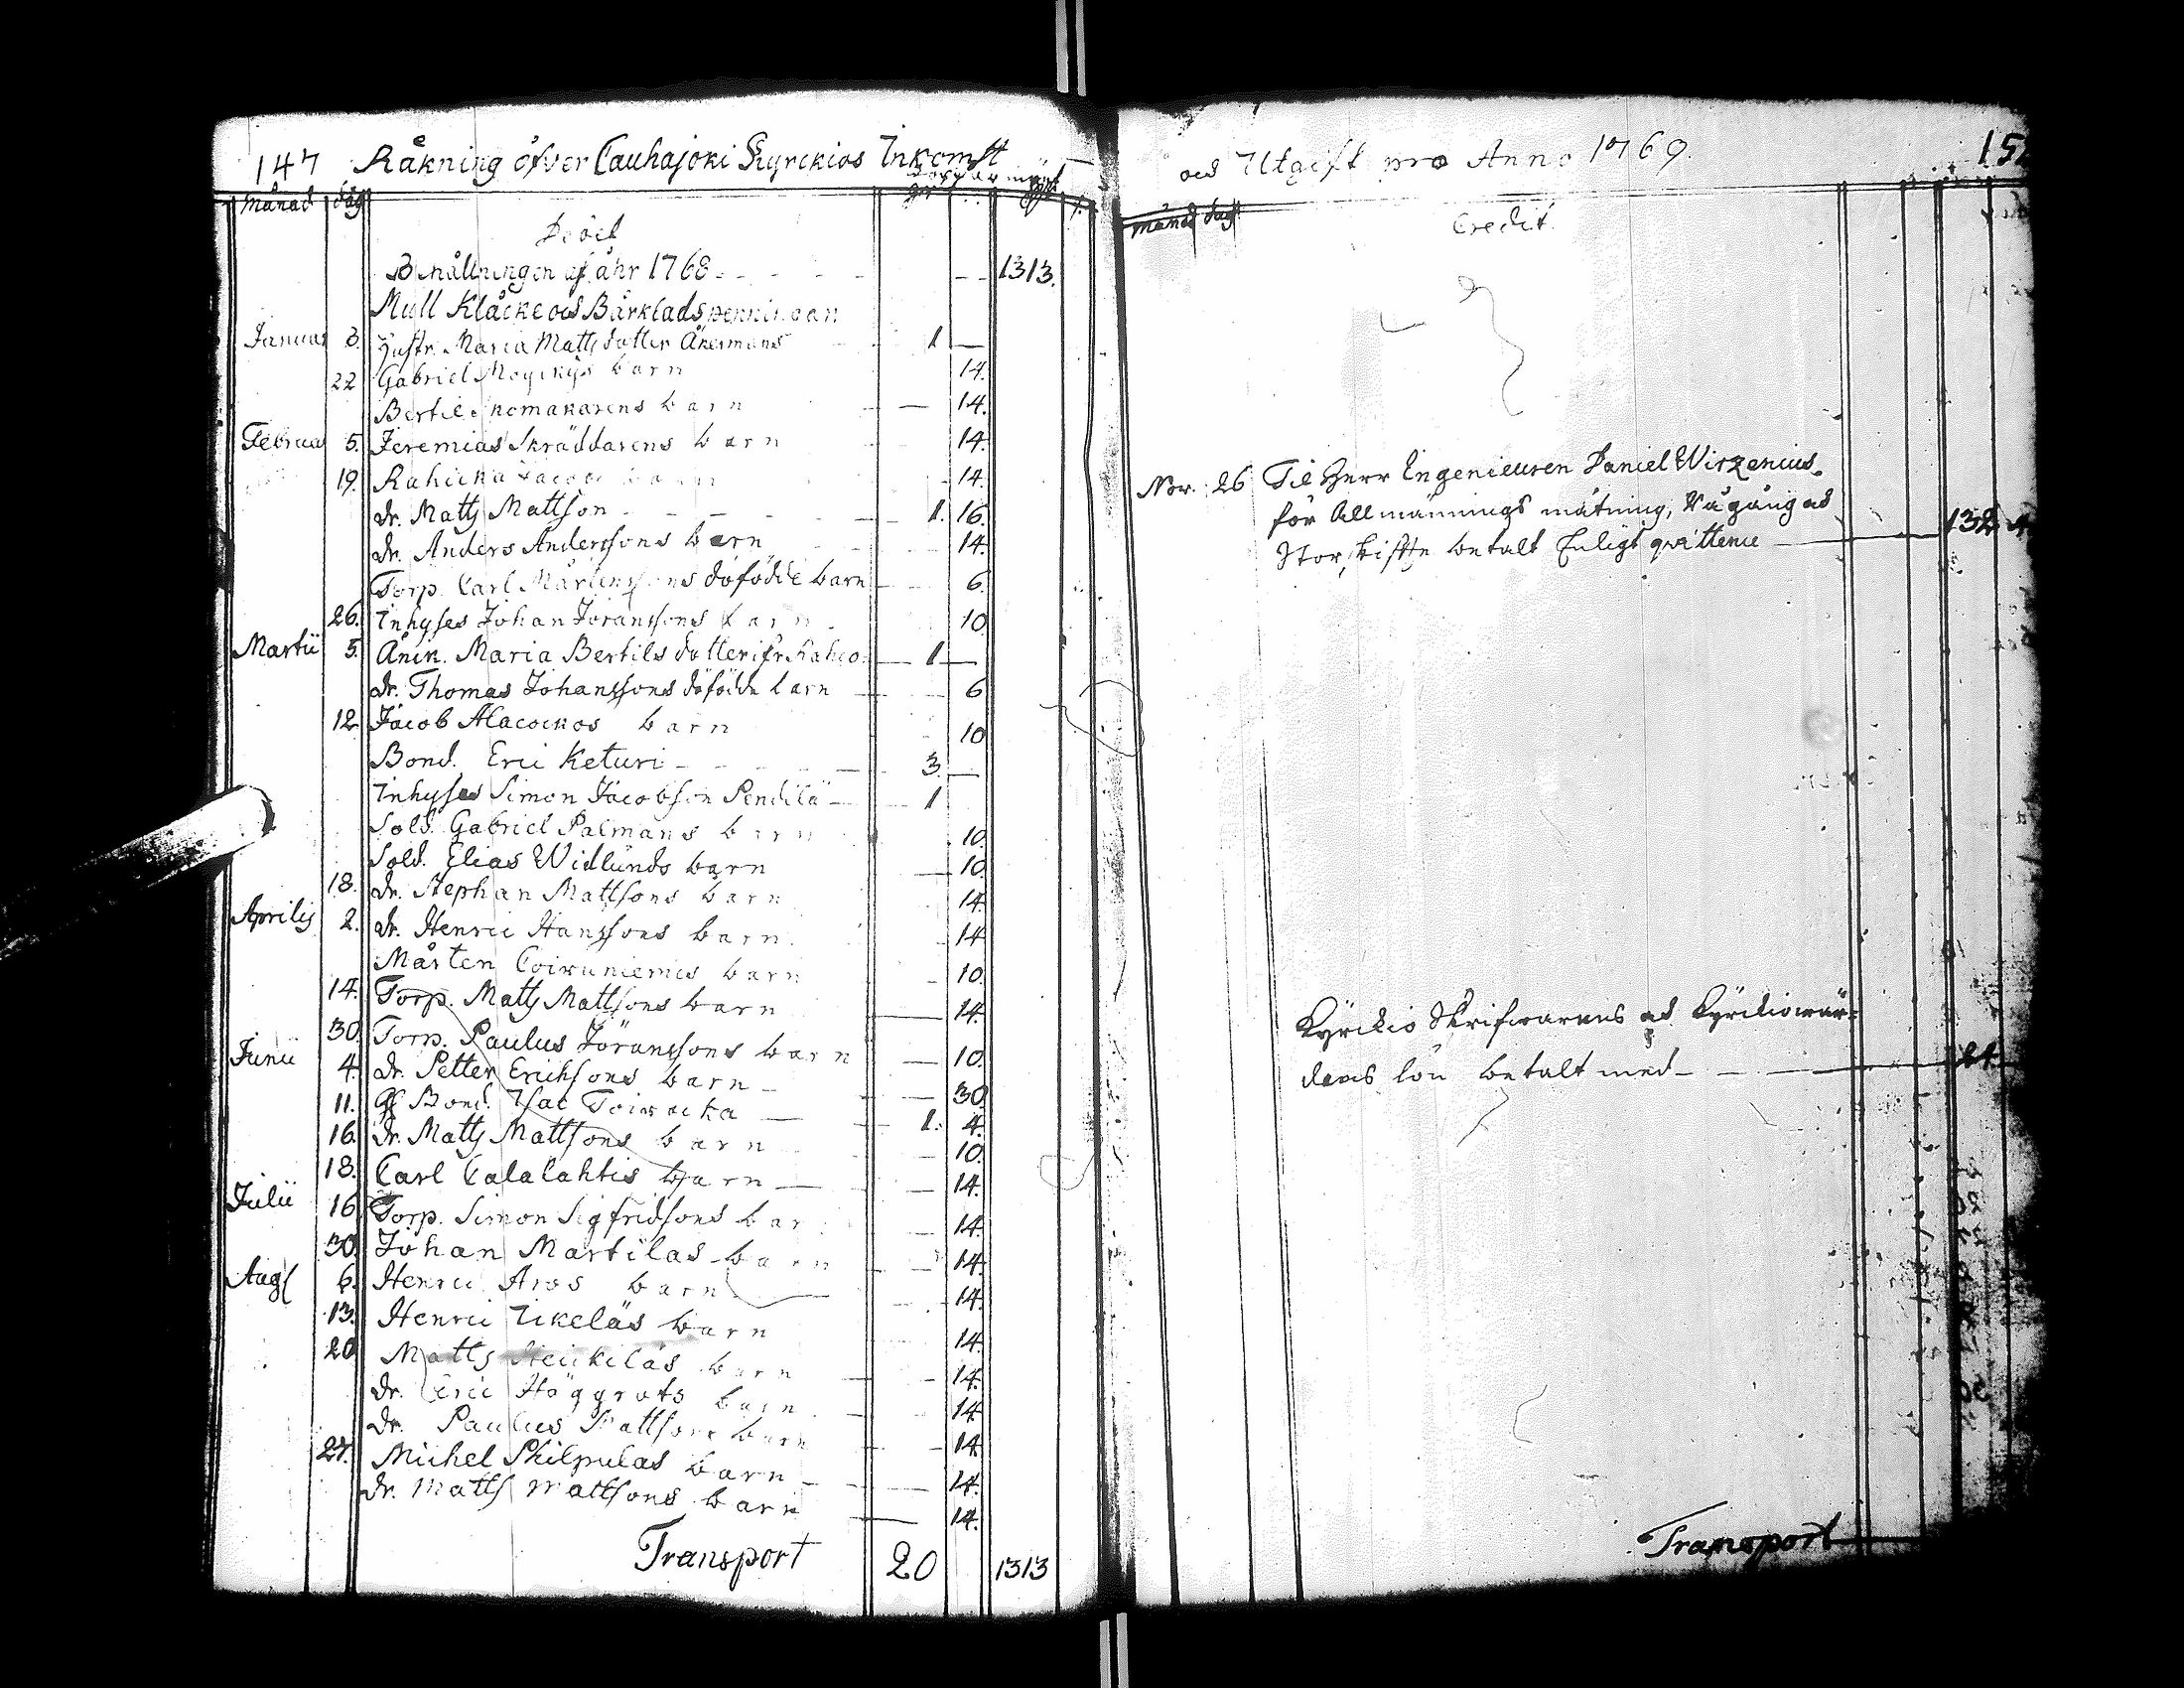 147 Råkning öfver Cauhajoki Kyrckios Inkomst
Månad dag
Debet
Behållningen af åhr 1768 1313.
Mull Klåcke och Bårklads penningan
Januar 3. Hustr. Maria Matts dotter Åkermans 1 —
22 Gabriel barn 14.
Bertil skomakarens barn — 14.
Februar 5. Jeremias Skräddarens barn 14.
19. Rahicka Jacobs barn 14.
dr. Matts Mattson 1. 16.
dr. Anders Anderssons barn 14.
Torp. Carl Mårtenssons döfödde barn 6.
26. Inhyses Johan Joranssons barn 10
Martii 5. Änck. Maria Bertils dotter ifr. Kahio — 1 —
dr. Thomas Johanssons döfödde barn 6
12 Jacob Alacockos barn 10
Bond. Eric Keturi 3. —
Inhyses Simon Jacobson Pendilä 1
Sold. Gabriel Palmans barn 10.
Sold. Elias Widlunds barn 10.
18. dr. Stephan Mattsons barn 14.
Aprilis 2. dr. Henric Hanssons barn 14
Mårten Coiwuniemis barn 10.
14. Torp. Matts Mattsons barn 14.
30. Torp. Paulus Jöranssons barn 10.
Junii 4. dr. Petter Erichsons barn 30
11. Gl Bond. Isac Toiwacka 1. 4.
16. dr. Matts Mattsons barn 10.
18. Carl Calalahtis barn 14.
Julii 16 Torp. Simon Sigfridsons bar 14.
30. Johan Martilas barn 14.
Aug 6. Henric Aros barn 14.
13. Henric Ikeläs barn 14.
20 Matts Heickiläs barn 14.
dr. Eric Häggrots barn 14.
dr. Paulus Mattsons barn 14.
27. Michel Philpulas barn 14.
dr. Matts Mattsons barn 14.
Transport 20 1313
och Utgift pro Anno 1769. 15
Månad dag
Credit.
Nov. 26 Til Herr Engenieuren Daniel Wirzenius
för Allmännings mätning, Rågång och
Storskifte betalt Enligt qvittence 132
Kyrckio Skrifwarens och Kyrckiowär=
dens lön betalt med 24.
Transport